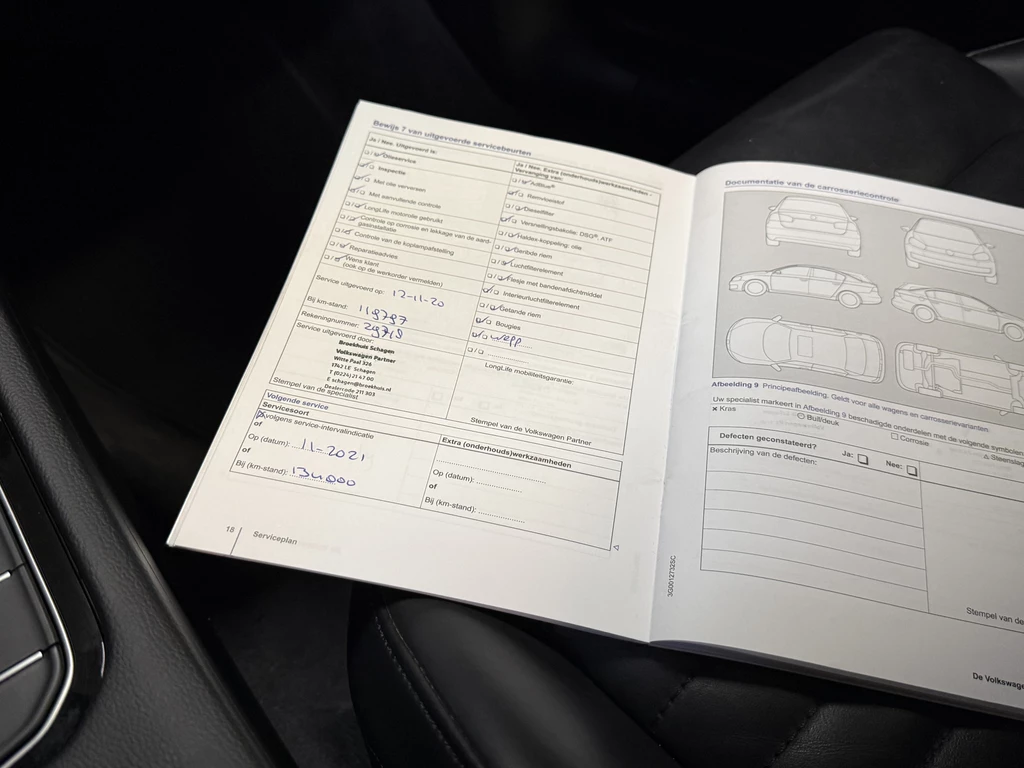 Bewijs 7 van uitgevoerde servicebeurten
Ja / Nee. Uitgevoerd is:
Olieservice
Inspectie
Met olie verversen
Met aanvullende controle
LongLife motorolie gebruikt
Controle op corrosie en lekkage van de aard-
gasinstallatie
Controle van de koplampafstelling
Reparatieadvies
Wens klant
(ook op de werkorder vermelden)
Service uitgevoerd op: 12-11-20
Bij km-stand: 119797
Rekeningnummer:
Service uitgevoerd door:
Broekhuis Schagen
Volkswagen Partner
Witte Paal 326
1742 LE Schagen
T (0224) 21 47 00
E schagen@broekhuis.nl
Dealercode 211 303
Stempel van de specialist
Ja / Nee. Extra (onderhouds)werkzaamheden -
Vervanging van:
AdBlue®
Remvloeistof
Dieselfilter
Versnellingsbakolie: DSG®, ATF
Haldex-koppeling: olie
Geribde riem
Luchtfilterelement
Flesje met bandenafdichtmiddel
Interieurluchtfilterelement
Getande riem
Bougies
LongLife mobiliteitsgarantie:
Stempel van de Volkswagen Partner
Volgende service
Servicesoort
volgens service-intervalindicatie
of
Op (datum): 11-2021
of
Bij (km-stand): 134000
Extra (onderhouds)werkzaamheden
Op (datum):
of
Bij (km-stand):
18 Serviceplan
Documentatie van de carrosseriecontrole
Afbeelding 9 Principeafbeelding. Geldt voor alle wagens en carrosserievarianten.
Uw specialist markeert in Afbeelding 9 beschadigde onderdelen met de volgende symbolen
× Kras
Buil/deuk
Corrosie
Steenslag
Defecten geconstateerd? Ja: Nee:
Beschrijving van de defecten:
Stempel van de
3G0012732SC
De Volkswage